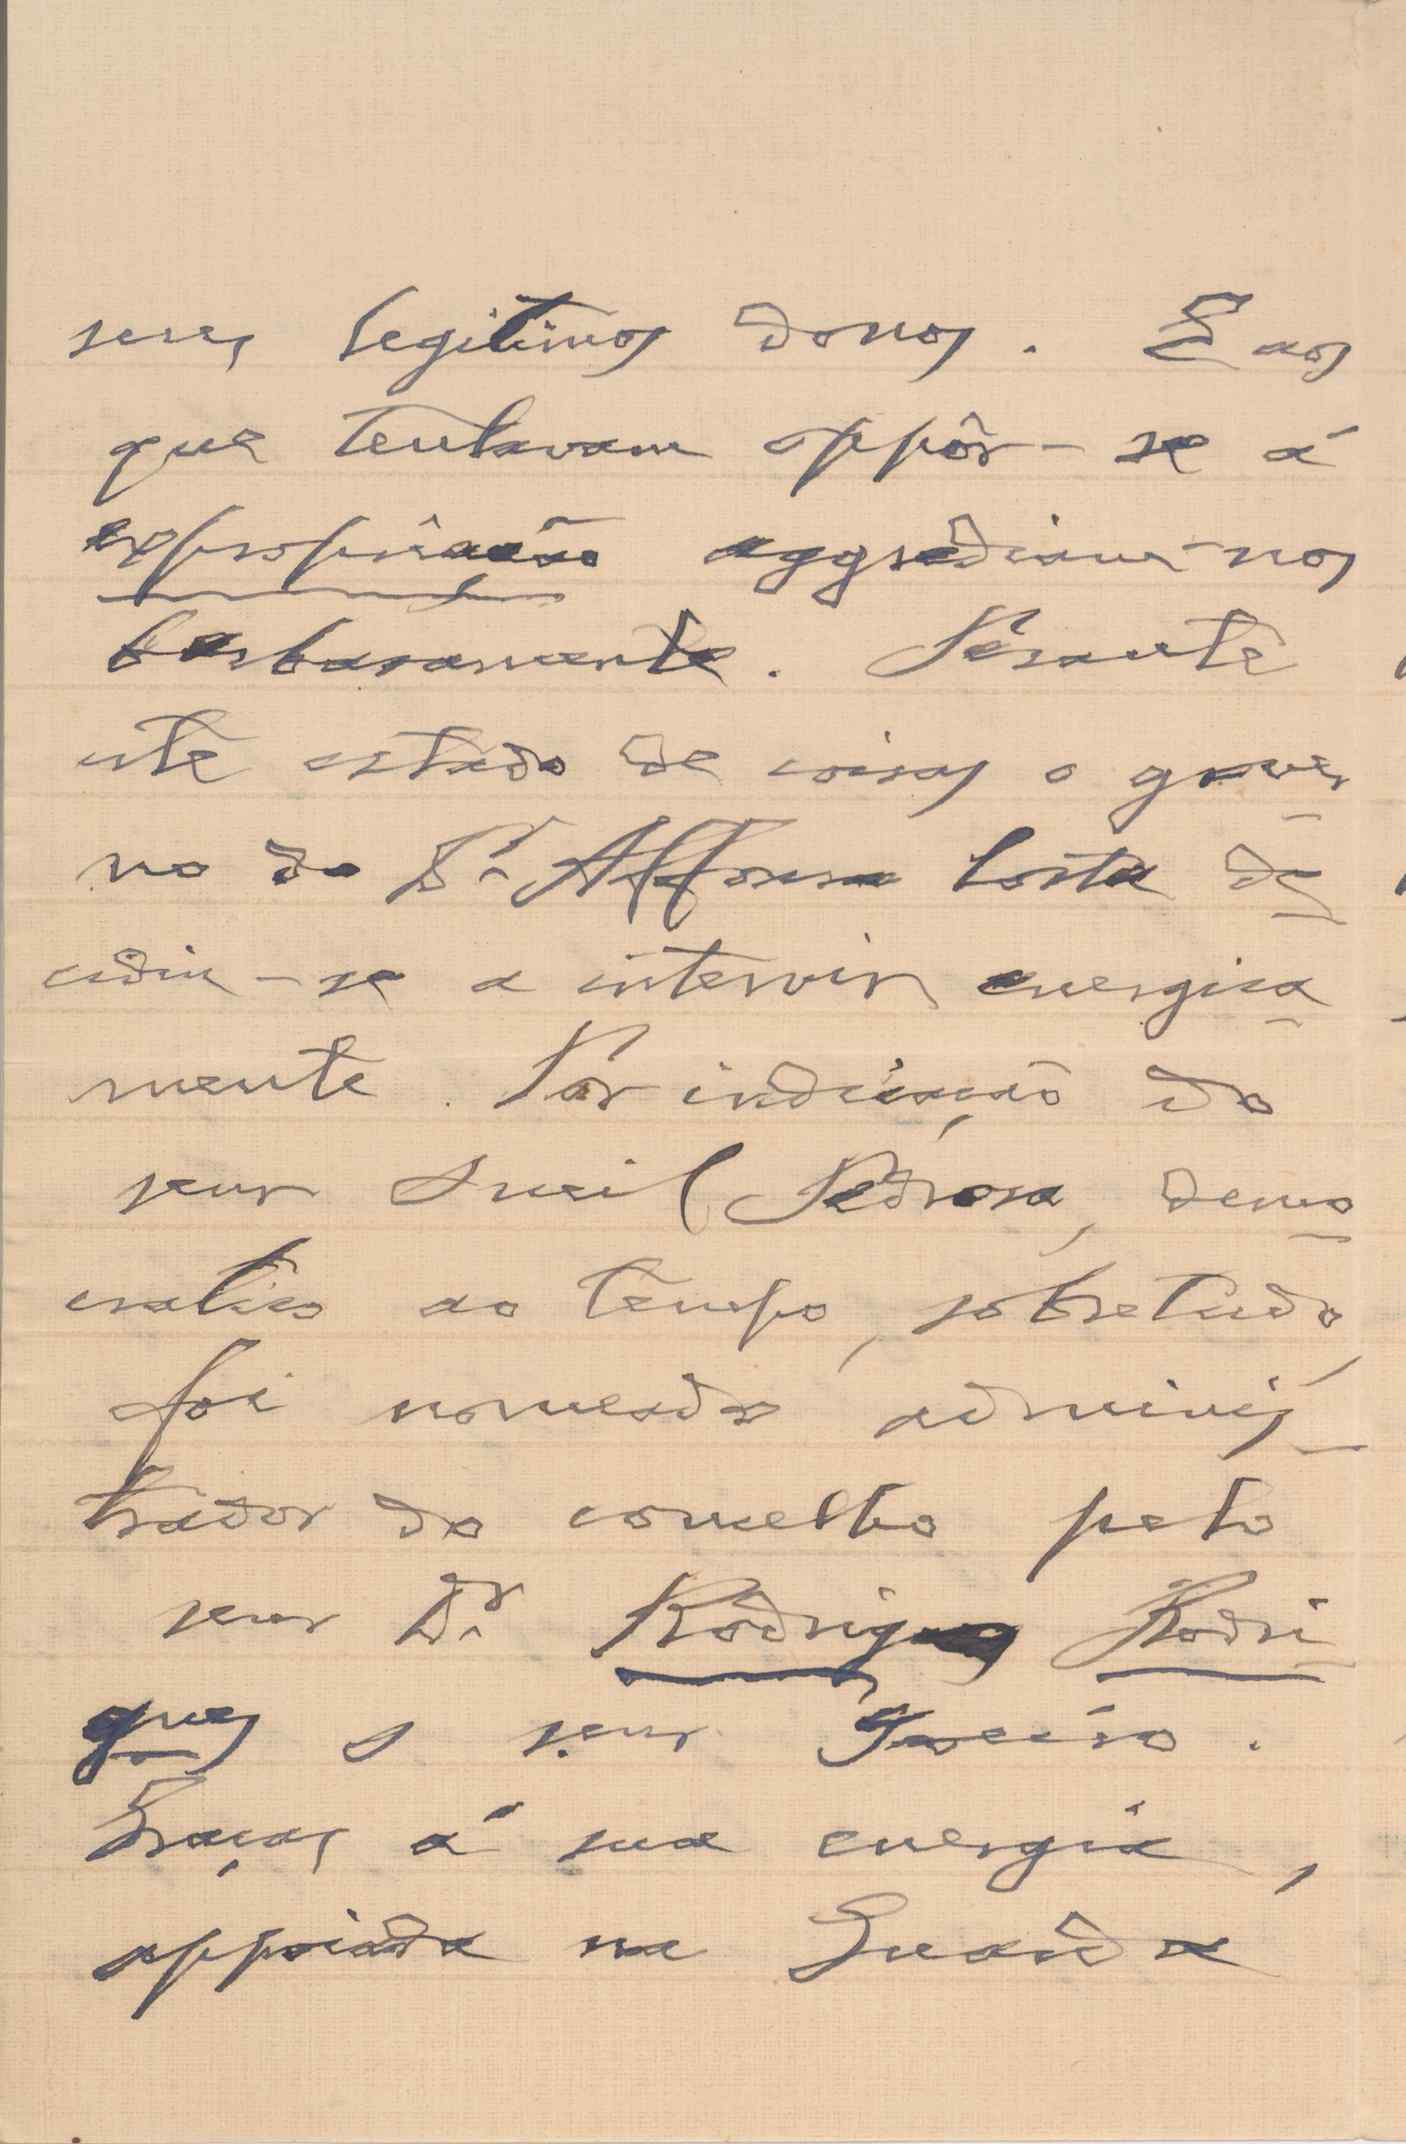 seus legitimos donos. E aos
que tentavam oppôr-se á
expropriação aggrediam-nos
barbaramente. Perante
este estado de coisas o gover
no do Dr. Affonso Costa de
cidiu-se a intervir energica
mente. Por indicação do
senr Pedrosa, demo
cratico ao tempo, sobretudo,
foi nomeado adminis
trador do concelho pelo
senr Dr. Rodrigues Rodri
gues o senr
Graças á sua energia,
appoiada na Guarda